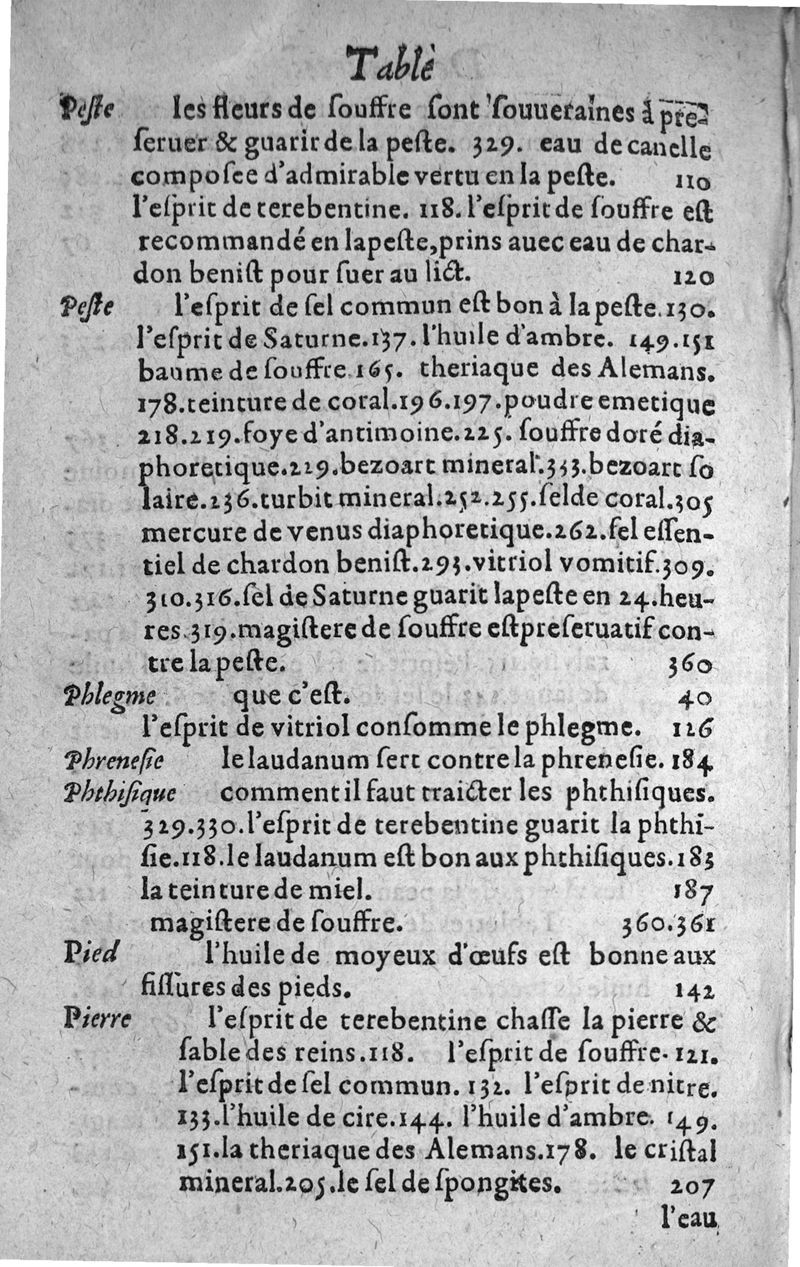 Table
Peſte les fleurs de ſouffre ſont ſouueraines à pre-
ſeruer & guarir de la peſte. 329. eau de canelle
compoſee d'admirable vertu en la peſte. 110
l'eſprit de terebentine. 118. l'eſprit de ſouffre eſt
recommandé en la peſte, prins auec eau de char-
don beniſt pour ſuer au lict. 120
Peſte l'eſprit de ſel commun eſt bon à la peſte. 130.
l'eſprit de Saturne. 137. l'huile d'ambre. 149. 151
baume de ſouffre 165. theriaque des Alemans.
178. teinture de coral. 196. 197. poudre emetique
218. 219. foye d'antimoine. 225. ſouffre doré dia-
phoretique. 229. bezoart mineral. 333. bezoart ſo
laire. 236. turbit mineral. 252. 255. ſel de coral. 305
mercure de venus diaphoretique. 262. ſel eſſen-
tiel de chardon beniſt. 293. vitriol vomitif. 309.
310. 316. ſel de Saturne guarit la peſte en 24. heu-
res. 319. magiſtere de ſouffre eſt preſeruatif con-
tre la peſte. 360
Phlegme que c'eſt. 40
l'eſprit de vitriol conſomme le phlegme. 126
Phreneſie le laudanum ſert contre la phreneſie. 184
Phthiſique comment il faut traicter les phthiſiques.
329. 330. l'eſprit de terebentine guarit la phthi-
ſie. 118. le laudanum eſt bon aux phthiſiques. 183
la teinture de miel. 187
magiſtere de ſouffre. 360. 361
Pied l'huile de moyeux d'œufs eſt bonne aux
fiſſures des pieds. 142
Pierre l'eſprit de terebentine chaſſe la pierre &
ſable des reins. 118. l'eſprit de ſouffre. 121.
l'eſprit de ſel commun. 132. l'eſprit de nitre.
133. l'huile de cire. 144. l'huile d'ambre. 149.
151. la theriaque des Alemans. 178. le criſtal
mineral. 205. le ſel de ſpongites. 207
l'eau